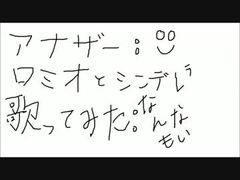 アナザー:
ロミオとシンデレ
歌ってみた:なんなもい